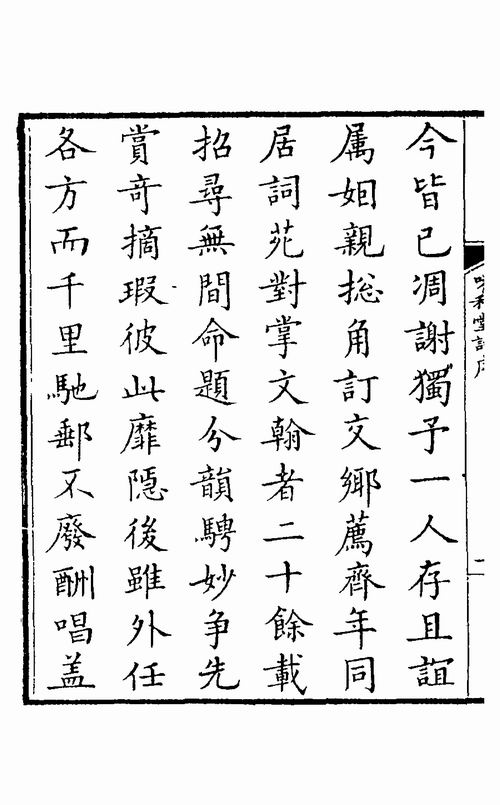 今皆已凋謝獨予一人存且誼
属姻親捴角訂交鄉薦齊年同
居詞苑對掌文翰者二十餘載
招尋無間命題分韻騁妙争先
賞奇摘瑕彼此靡隱後雖外任
各方而千里馳郵不廢酬唱盖